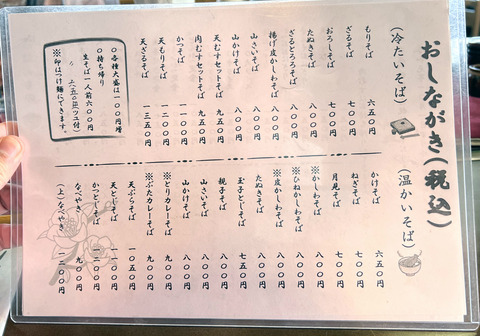 おしながき(税込)
(冷たいそば)
もりそば 六五〇円
ざるそば 七〇〇円
おろしそば 七〇〇円
たぬきそば 八〇〇円
ざるとろろそば 八〇〇円
揚げ皮かしわそば 八〇〇円
山さいそば 八〇〇円
山かけそば 八〇〇円
天むすセットそば 九五〇円
肉むすセットそば 九五〇円
かつそば 一一〇〇円
天もりそば 一二〇〇円
天ざるそば 一三五〇円
○各種大盛は一〇〇円増
○持ち帰り
生そば一人前六〇〇円
(ツユ付)
※印はつけ麺にできます。
(温かいそば)
かけそば 六五〇円
ねぎそば 七〇〇円
月見そば 七〇〇円
※かしわそば 八〇〇円
※ひねかしわそば 八〇〇円
※皮かしわそば 八〇〇円
たぬきそば 八〇〇円
玉子とじそば 七五〇円
親子そば 八〇〇円
山さいそば 八〇〇円
山かけそば 八〇〇円
※とりカレーそば 九〇〇円
※ぶたカレーそば 九〇〇円
天ぷらそば 一〇五〇円
天とじそば 一一〇〇円
かつとじそば
なべやき 九〇〇円
(上)なべやき 一二〇〇円